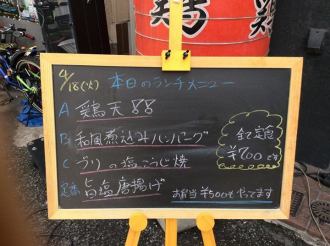 鶏 鶏
4/18(火) 本日のランチメニュー
A 鶏天
B 和風煮込みハンバーグ
C ブリの塩こうじ焼
旨塩唐揚げ
全て定食
¥700です
お弁当¥500もやってます